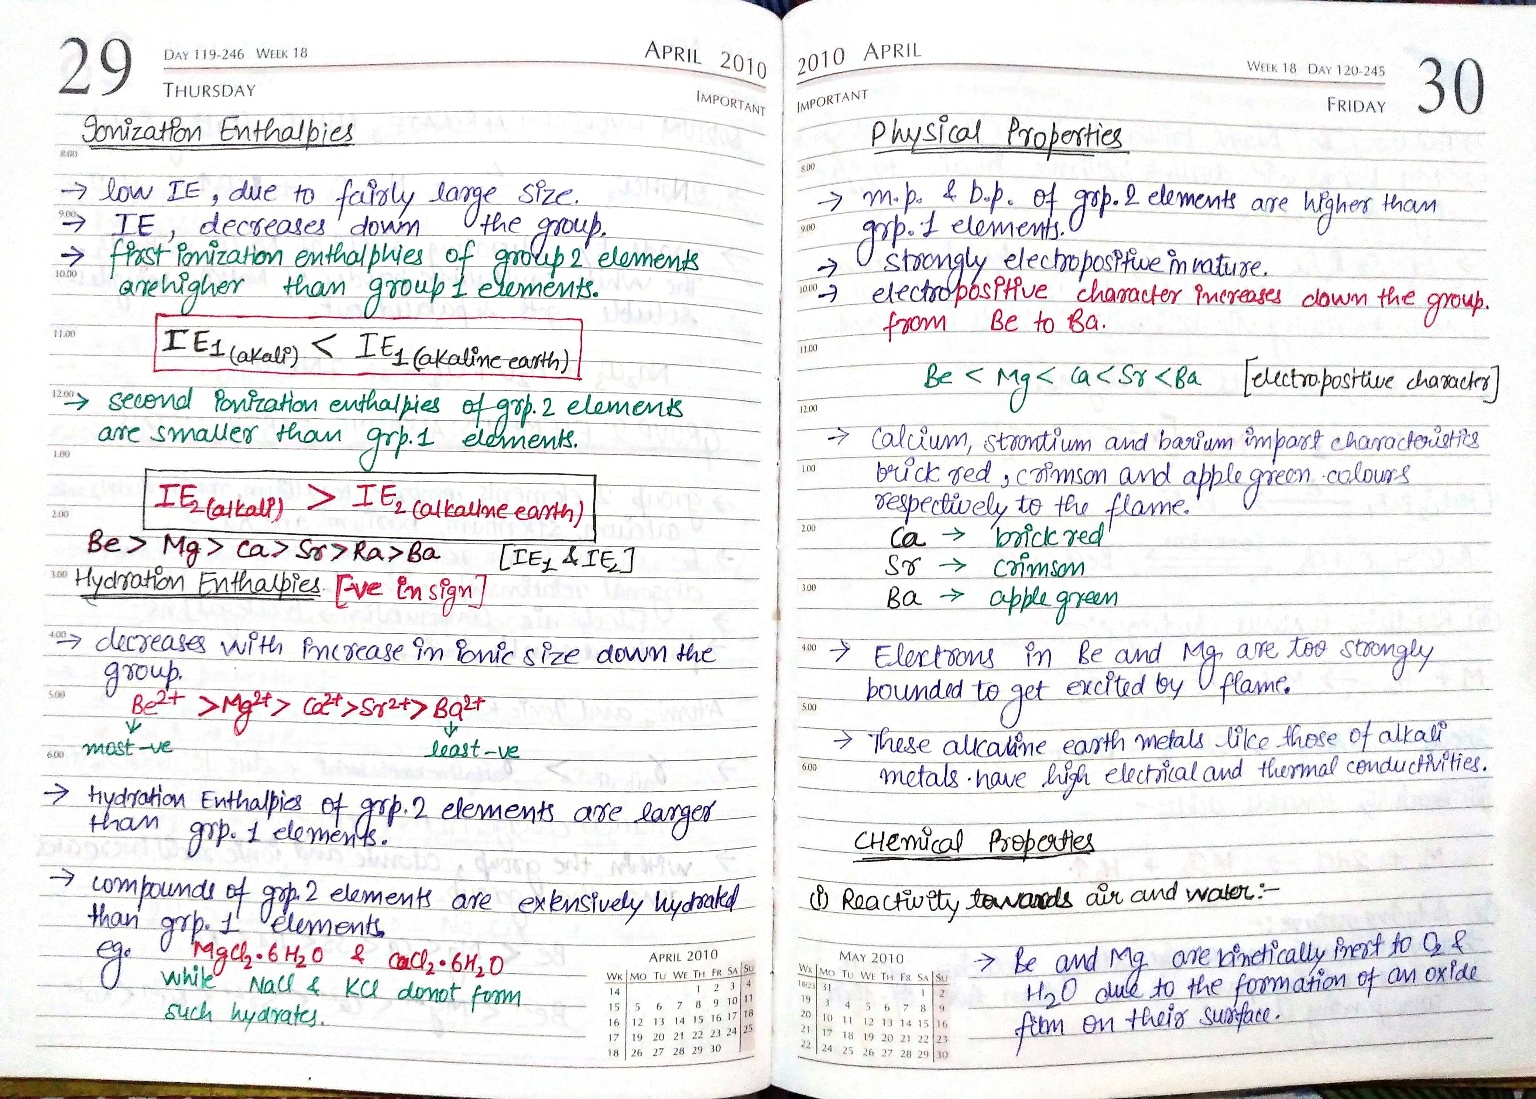 29
DAY 119-246 WEEK 18
THURSDAY
APRIL 2010
IMPORTANT
Ionization Enthalpies
8.00
→ low IE, due to fairly large size.
9.00
→ IE, decreases down the group.
→ first ionization enthalphies of group 2 elements
10.00
are higher than group 1 elements.
11.00
IE1 (akali) < IE1 (akaline earth)
12.00
→ second ionization enthalpies of grp. 2 elements
are smaller than grp. 1 elements.
1.00
IE2 (alkali) > IE2 (alkaline earth)
2.00
Be > Mg > Ca > Sr > Ra > Ba [IE1 & IE2]
3.00
Hydration Enthalpies [-ve in sign]
4.00
→ decreases with increase in ionic size down the
group.
5.00
Be2+ > Mg2+ > Ca2+ > Sr2+ > Ba2+
most -ve least -ve
6.00
→ Hydration Enthalpies of grp. 2 elements are larger
than grp. 1 elements.
→ compounds of grp. 2 elements are extensively hydrated
than grp. 1 elements
eg. MgCl2.6H2O & CaCl2.6H2O
while NaCl & KCl donot form
such hydrates.
APRIL 2010
WK MO TU WE TH FR SA SU
14 1 2 3 4
15 5 6 7 8 9 10 11
16 12 13 14 15 16 17 18
17 19 20 21 22 23 24 25
18 26 27 28 29 30
2010 APRIL
IMPORTANT
WEEK 18 DAY 120-245
FRIDAY
30
Physical Properties
8.00
→ m.p. & b.p. of grp. 2 elements are higher than
9.00
grp. 1 elements.
→ strongly electropositive in nature.
10.00
→ electropositive character increases down the group.
from Be to Ba.
11.00
Be < Mg < Ca < Sr < Ba [electropositive character]
12.00
→ Calcium, strontium and barium impart characteristics
1.00
brick red, crimson and apple green colours
respectively to the flame.
2.00
Ca → brick red
Sr → crimson
3.00
Ba → apple green
4.00
→ Electrons in Be and Mg are too strongly
bounded to get excited by flame.
5.00
→ These alkaline earth metals like those of alkali
6.00
metals have high electrical and thermal conductivities.
Chemical Properties
(i) Reactivity towards air and water:-
→ Be and Mg are kinetically inert to O2 &
H2O due to the formation of an oxide
film on their surface.
MAY 2010
WK MO TU WE TH FR SA SU
18/23 31 1 2
19 3 4 5 6 7 8 9
20 10 11 12 13 14 15 16
21 17 18 19 20 21 22 23
22 24 25 26 27 28 29 30